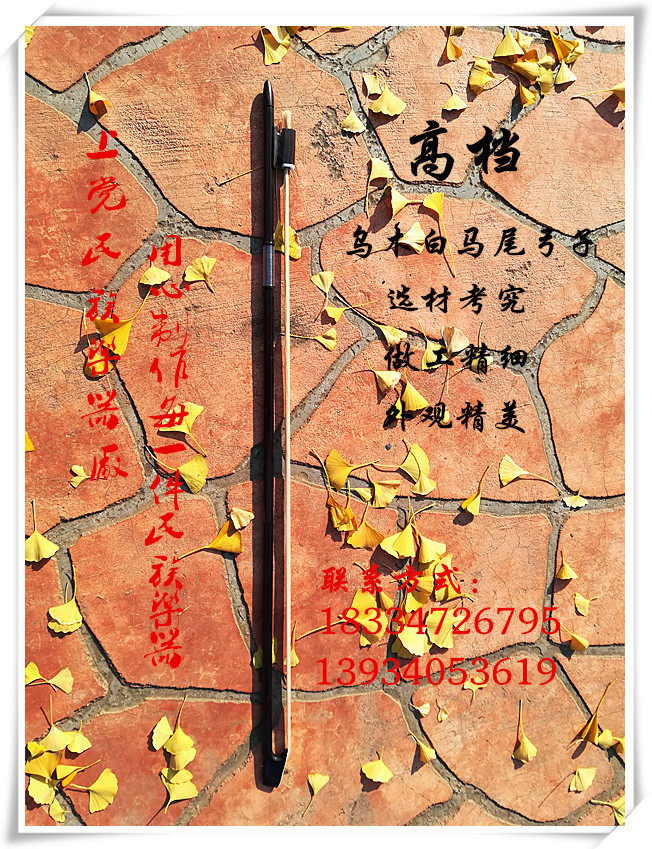 上党民族樂器廠
用心制作每一件民族樂器
高档
乌木白马尾弓子
选材考究
做工精细
外观精美
联系方式：
18334726795
13934053619